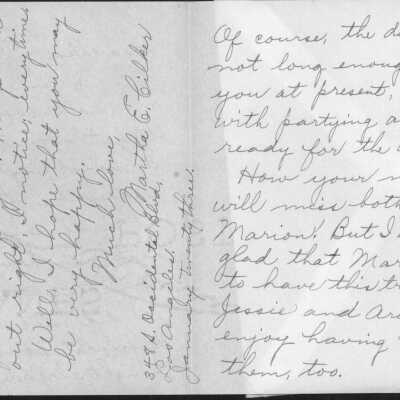 out right I notice, everytime
Well, I hope that you may
be very happy.
Much love,
Martha E. Cilker
348 S. Occidental Blvd.,
Los Angeles.
January twenty three.
Of course, the d
not long enoug
you at present,
with partying a
ready for the
How your m
will miss both
Marion! But I
glad that Mar
to have this tr
Jessie and Ar
enjoy having
them, too.